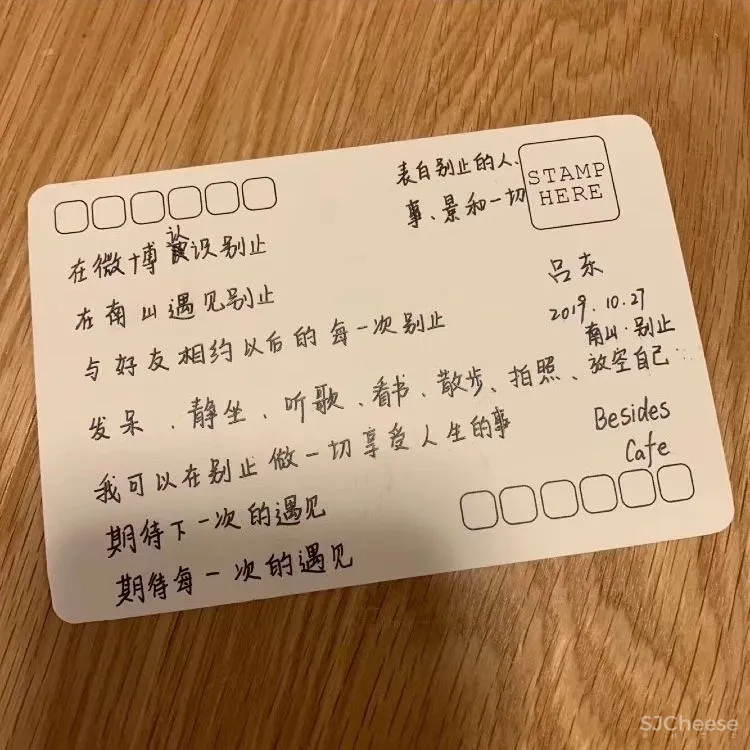 表白别止的人、
事、景和一切
STAMP
HERE
在微博认识别止
在南山遇见别止
与好友相约以后的每一次别止
发呆、静坐、听歌、看书、散步、拍照、放空自己…
我可以在别止做一切享受人生的事
期待下一次的遇见
期待每一次的遇见
吕东
2019.10.27
南山·别止
Besides
Cafe
SJCheese